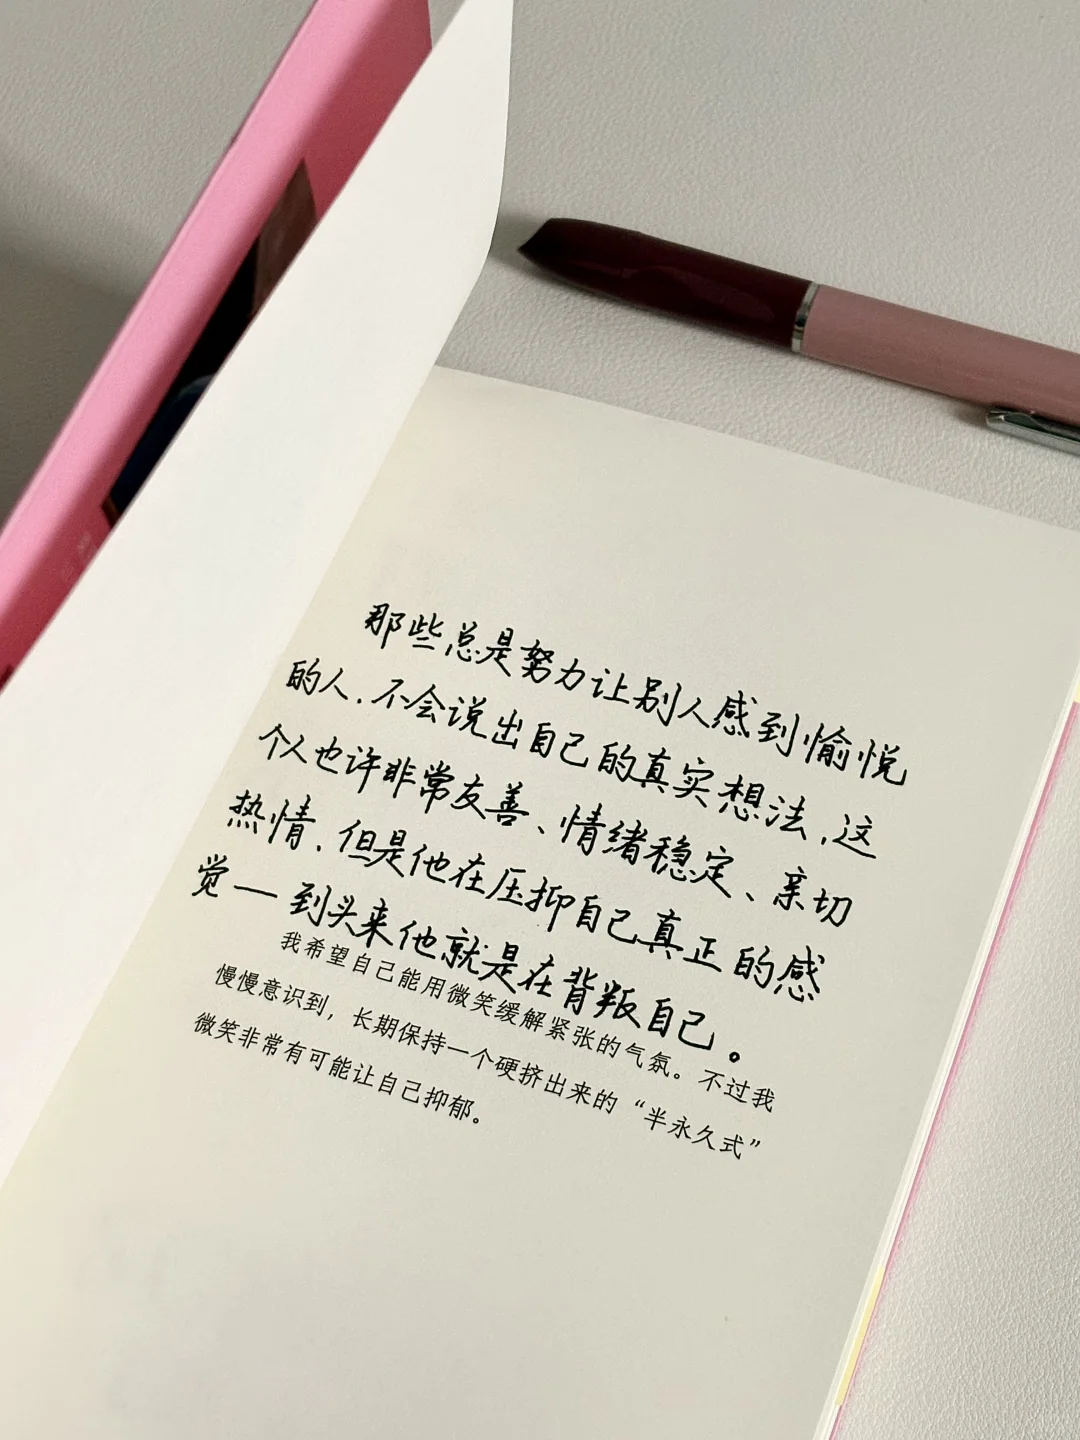 那些总是努力让别人感到愉悦
的人.不会说出自己的真实想法,这
个人也许非常友善、情绪稳定、亲切
热情.但是他在压抑自己真正的感
觉一到头来他就是在背叛自己。
我希望自己能用微笑缓解紧张的气氛。不过我
慢慢意识到，长期保持一个硬挤出来的“半永久式”
微笑非常有可能让自己抑郁。